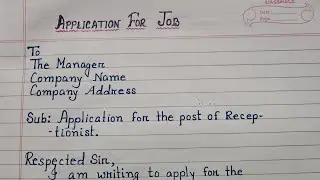 APPLICATION FOR JOB
To
The Manager
Company Name
Company Address
Sub: Application for the post of Recep-
-tionist.
Respected Sir,
I am writing to apply for the